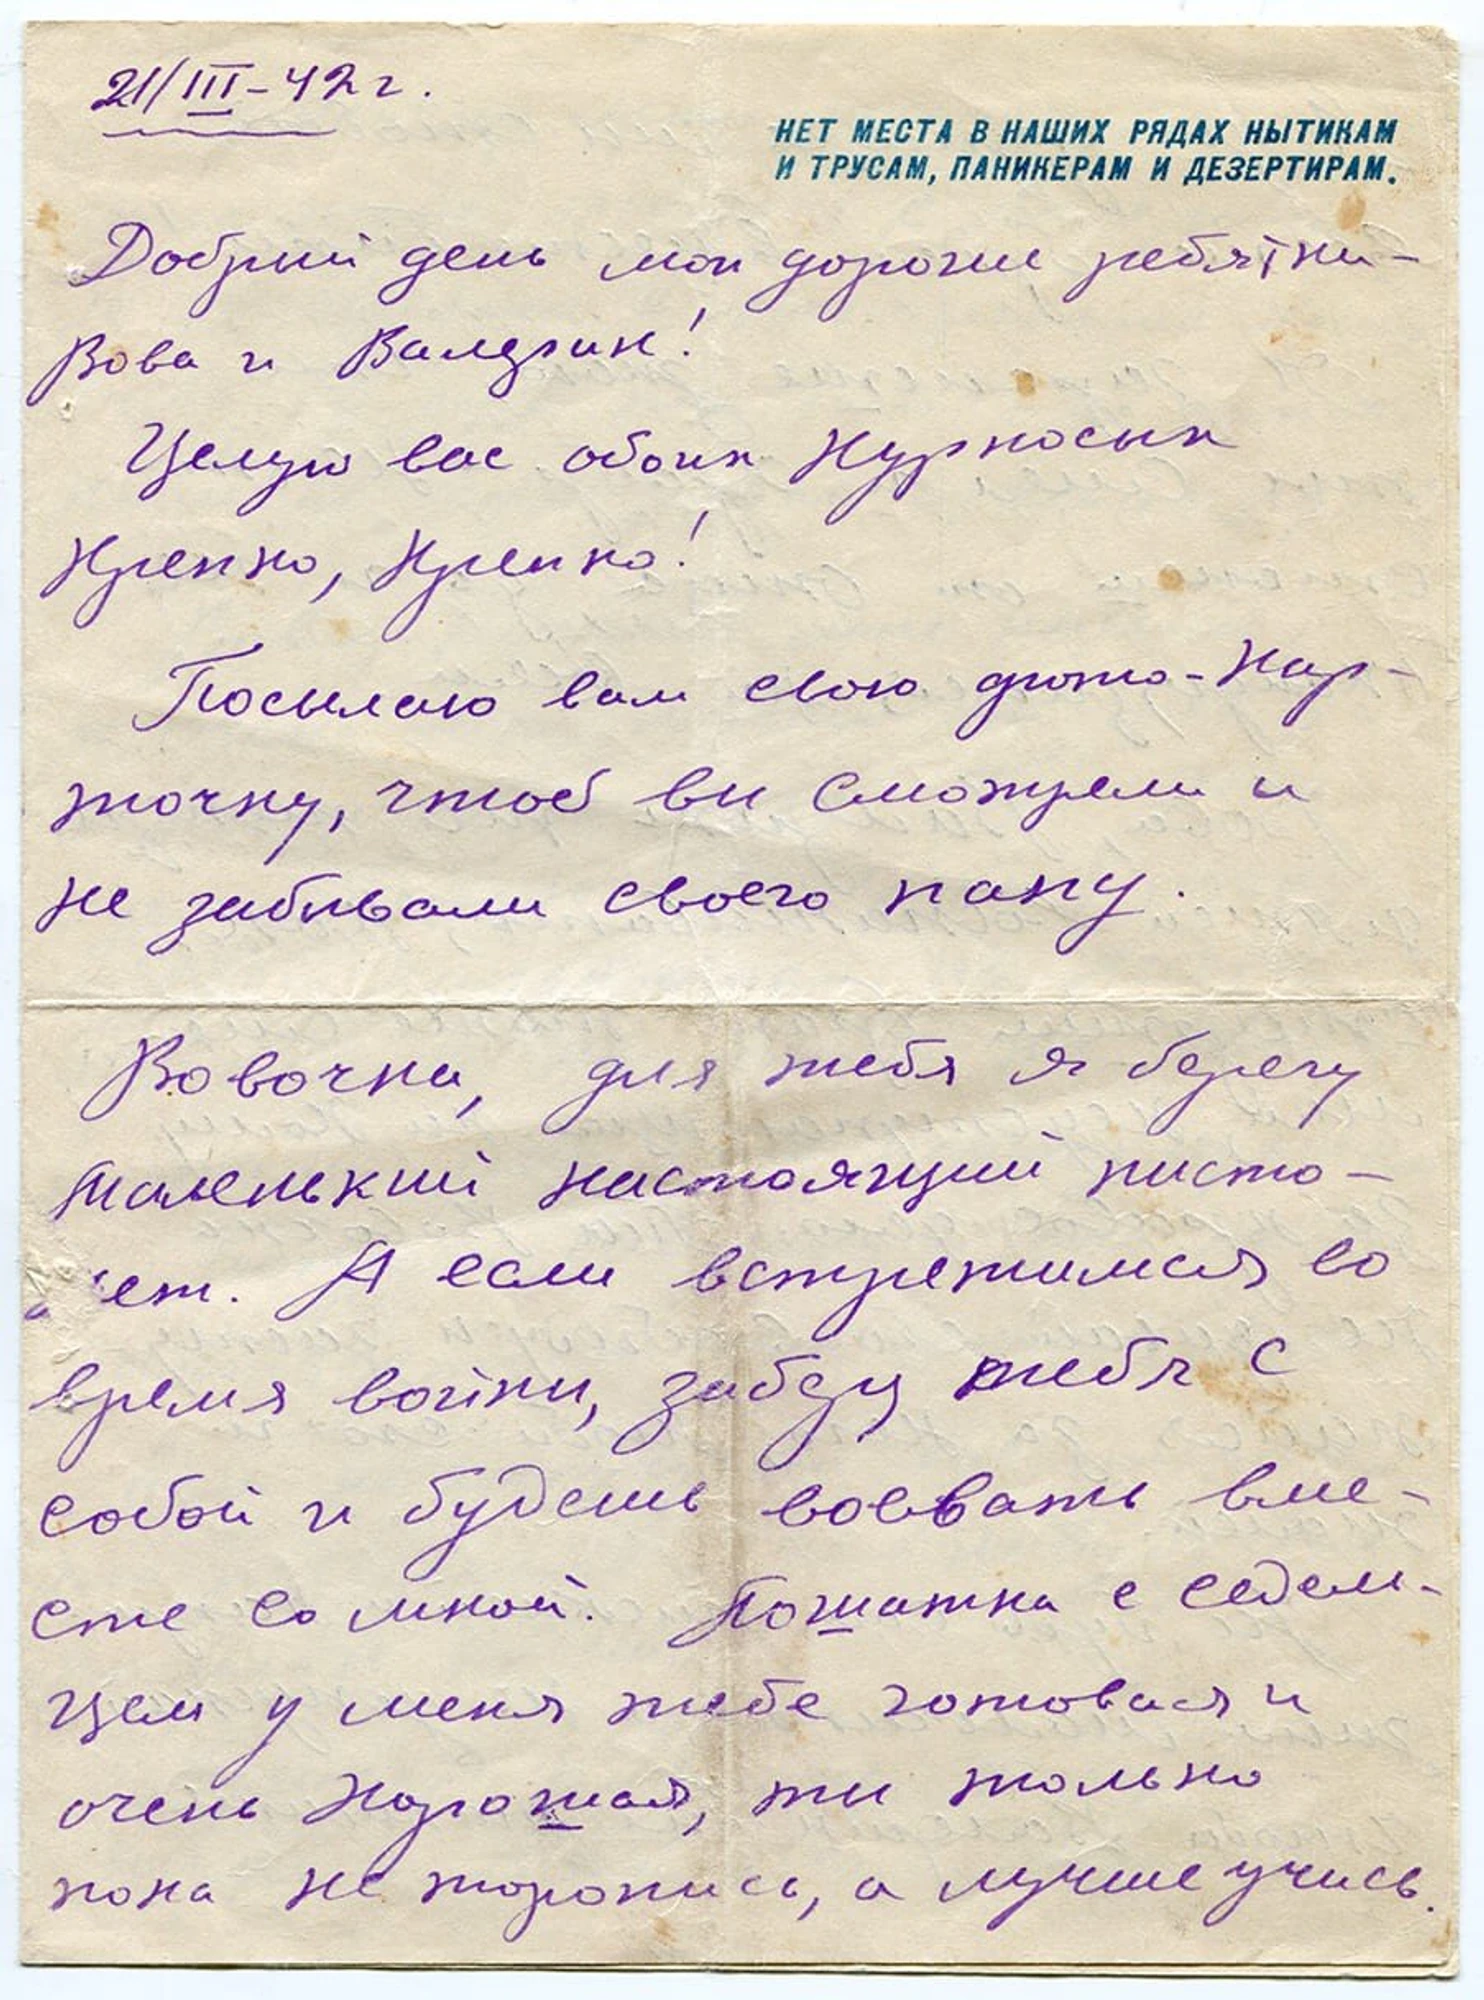 21/III-42 г.
НЕТ МЕСТА В НАШИХ РЯДАХ НЫТИКАМ
И ТРУСАМ, ПАНИКЕРАМ И ДЕЗЕРТИРАМ.
Добрий день мои дорогие ребятки-
Вова и Валерик!
Целую вас обоих Курносых
Крепко, Крепко!
Посылаю вам свою фото-Кар-
точку, чтоб ви смотрели и
не забивали своего папу.
Вовочка, для тебя я берегу
маленький настоящий писто-
лет. А если встретимся во
время войни, заберу тебя с
собой и будешь воевать вме-
сте со мной. Лошадка с седел-
цем у меня тебе готовая и
очень Хорошая, ти только
пока не торопись, а лучше учись.